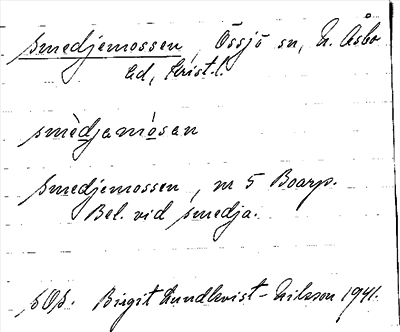 Smedjemossen, Össjö sn, N. Åsbo
hd, Krist.l.
smèdjamòsan
Smedjemossen, nr 5 Boarp.
Bel. vid smedja.
Birgit Lundkvist-Nilsson 1941.